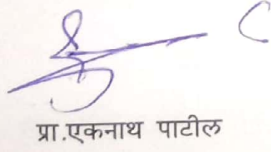 प्रा.एकनाथ पाटील